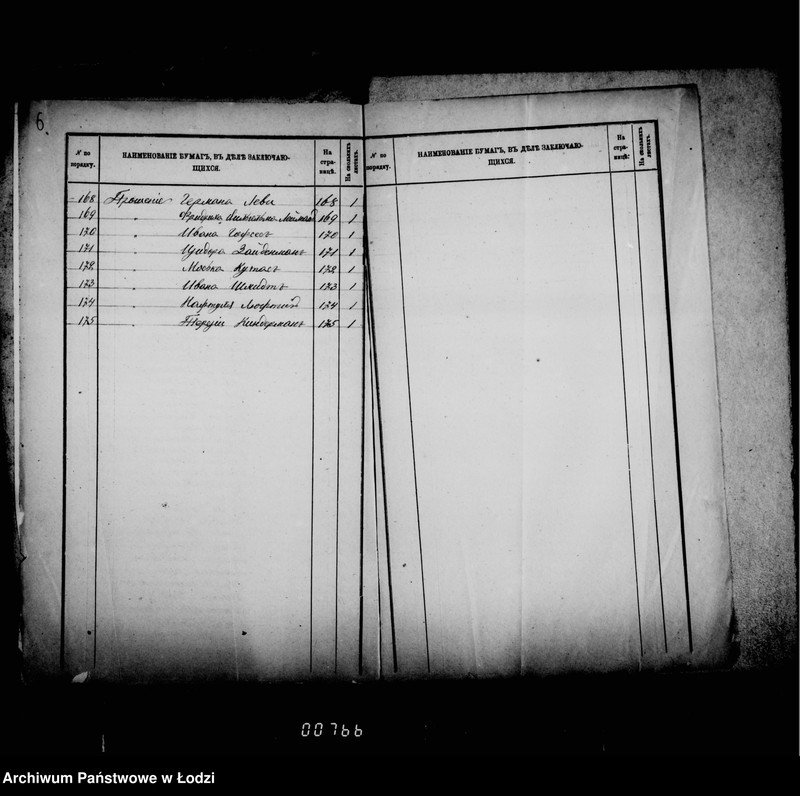 6.
№ по порядку.
НАИМЕНОВАНІЕ БУМАГЪ, ВЪ ДѢЛѢ ЗАКЛЮЧАЮ-
ЩИХСЯ.
На стра-ницѣ.
На сколькихъ листахъ.
168 Прошеніе Германа Леви 168 1
169 " 169 1
170 " Ивана 170 1
171 " Изидора Зайденманъ 171 1
172 " Мошка 172 1
173 " Ивана Шмидтъ 173 1
174 " 174 1
175 " Терезіи Киндерманъ 175 1
№ по порядку.
НАИМЕНОВАНІЕ БУМАГЪ, ВЪ ДѢЛѢ ЗАКЛЮЧАЮ-
ЩИХСЯ.
На стра-ницѣ:
На сколькихъ листахъ.
00766
Archiwum Państwowe w Łodzi